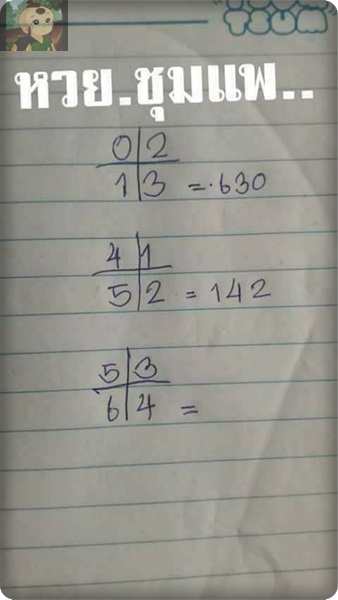 TSUM
หวย.ชุมแพ..
0 2
1 3 = 630
4 1
5 2 = 142
5 3
6 4 =